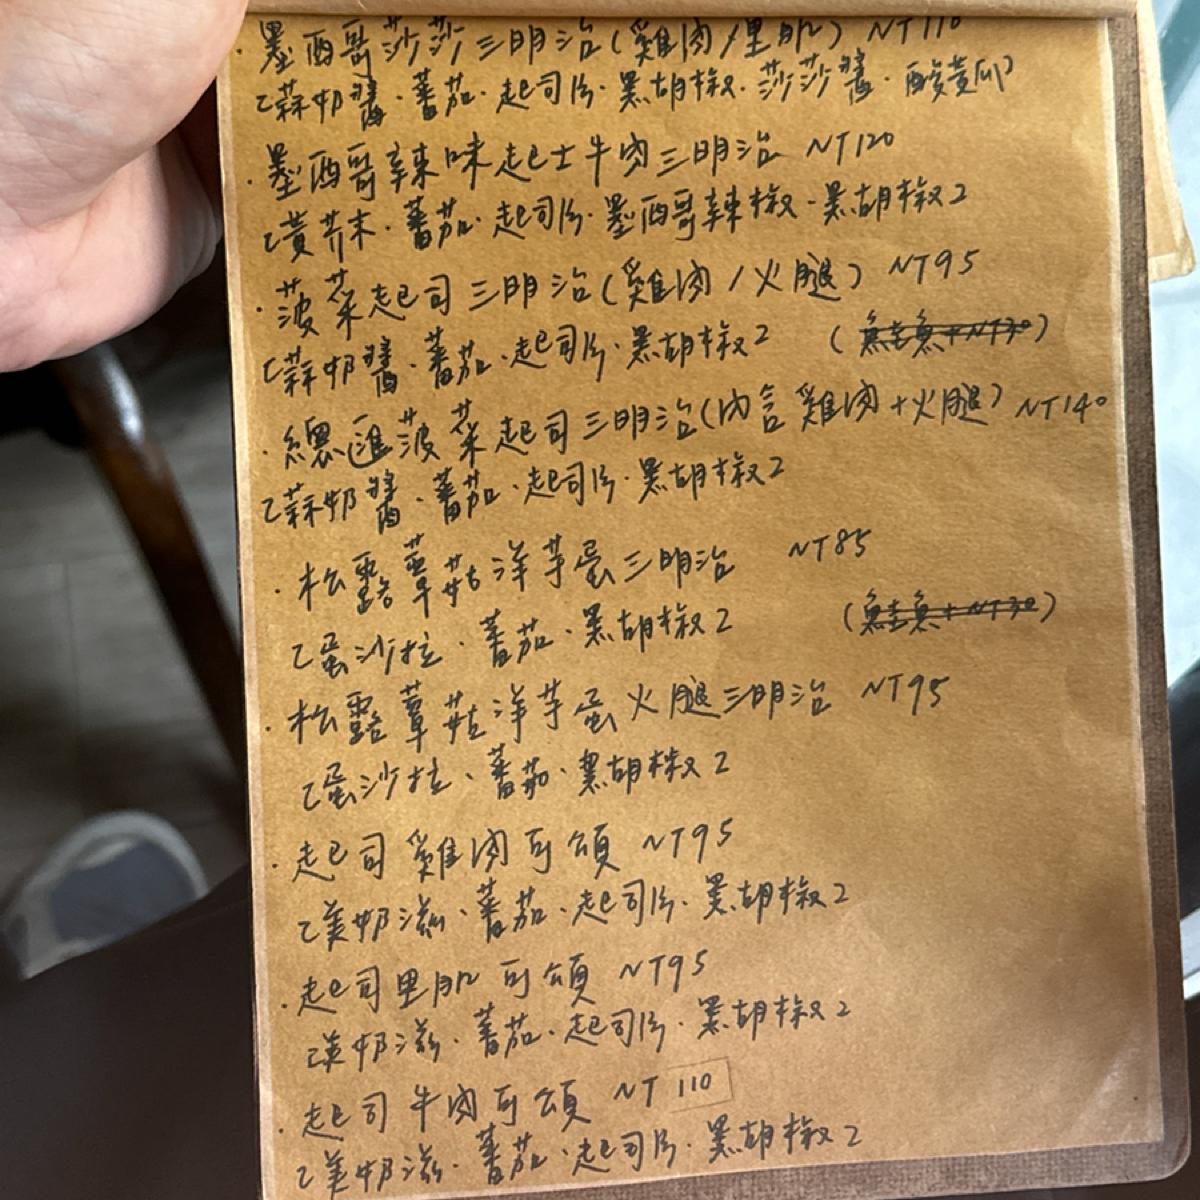 ·墨西哥莎莎三明治(雞肉/里肌) NT110
〔蒜奶醬·蕃茄·起司片·黑胡椒·莎莎醬·酸黃瓜〕
·墨西哥辣味起士牛肉三明治 NT120
〔黃芥末·蕃茄·起司片·墨西哥辣椒·黑胡椒〕
·菠菜起司三明治(雞肉/火腿) NT95
〔蒜奶醬·蕃茄·起司片·黑胡椒〕 (鮭魚+NT30)
·總匯菠菜起司三明治(內含雞肉+火腿) NT140
〔蒜奶醬·蕃茄·起司片·黑胡椒〕
·松露蕈菇洋芋蛋三明治 NT85
〔蛋沙拉·蕃茄·黑胡椒〕 (鮭魚+NT30)
·松露蕈菇洋芋蛋火腿三明治 NT95
〔蛋沙拉·蕃茄·黑胡椒〕
·起司雞肉可頌 NT95
〔美奶滋·蕃茄·起司片·黑胡椒〕
·起司里肌可頌 NT95
〔美奶滋·蕃茄·起司片·黑胡椒〕
·起司牛肉可頌 NT110
〔美奶滋·蕃茄·起司片·黑胡椒〕